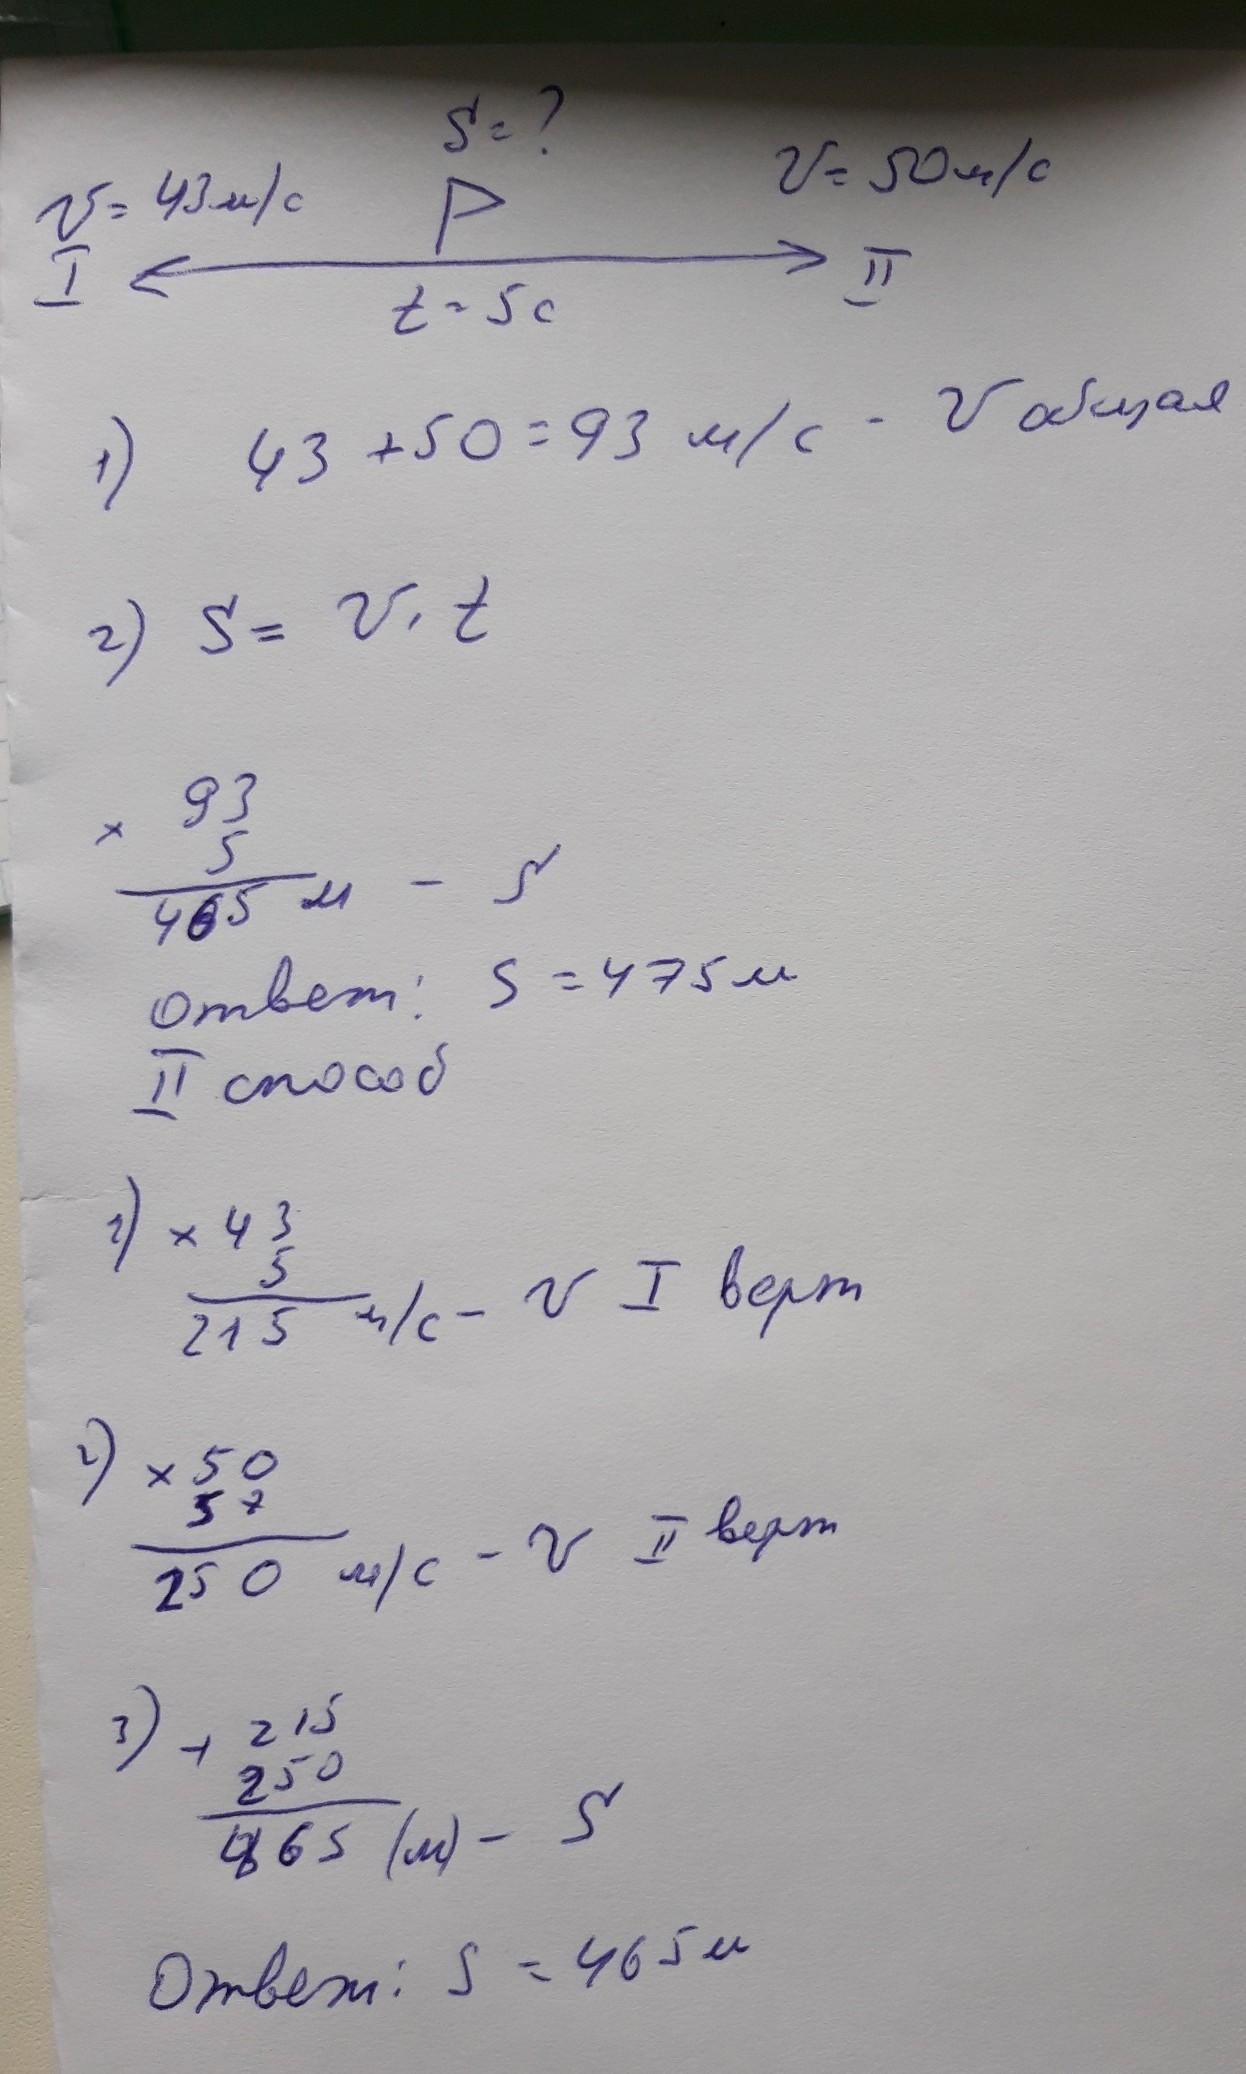 S = ?
v = 43м/с
v = 50м/с
I
II
t = 5с
1) 43 + 50 = 93 м/с - v общая
2) S = v · t
× 93
5
465 м - S
Ответ: S = 475м
II способ
1) × 43
5
215 м/с - v I верт
2) × 50
5
250 м/с - v II верт
3) + 215
250
465 (м) - S
Ответ: S = 465м